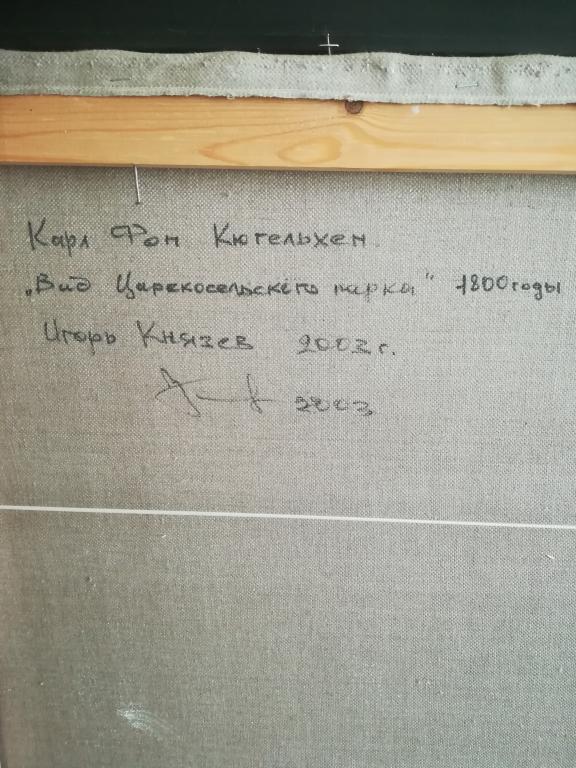 Карл Фон Кюгельхен
„Вид Царскосельского парка" 1800 годы
Игорь Князев 2003 г.
2003